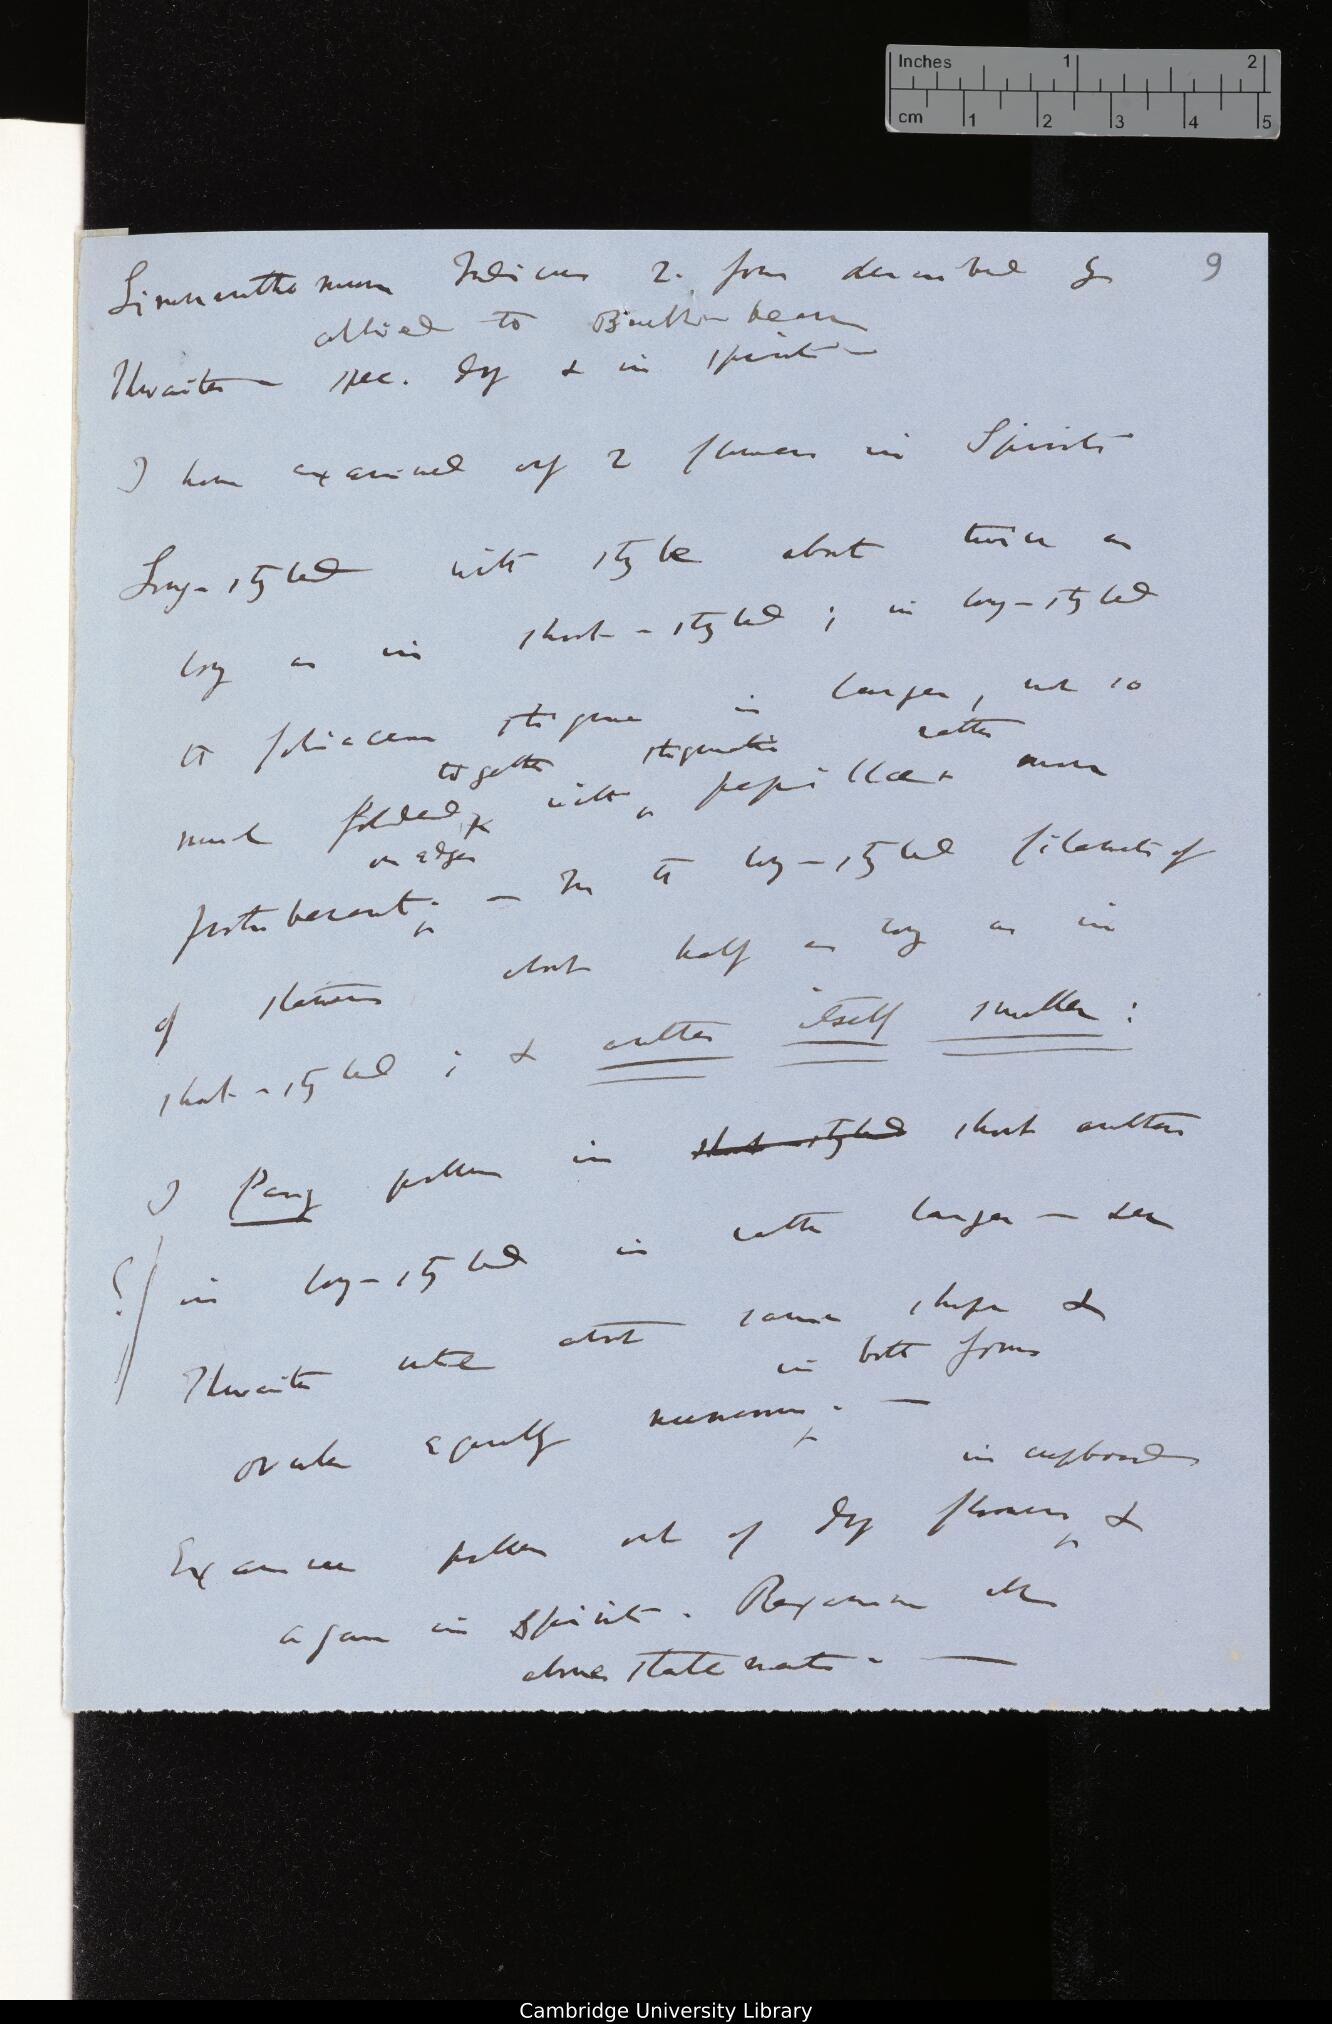 Inches 1 2
cm 1 2 3 4 5
9
Limnanthemum Indicum 2. forms described by
allied to Buck-bean
Thwaites — spec. dry & in spirits —
I have examined only 2 flowers in Spirits
Long-styled with style about twice as
long as in short-styled; in long-styled
the foliaceous stigma is larger, not so
together stigmatic rather
much folded, with papillae more
on edges
protuberant; — In the long-styled filaments of
of stamens about half as long as in
short-styled; & anther itself smaller:
I fancy pollen in short-styled short anthers
?// in long-styled is rather larger — see
Thwaites note about same shape &
in both forms
ovules equally numerous. —
in cupboard
Examine pollen out of dry flowers, &
again in Spirits. Reexamine all
above statements. —
Cambridge University Library